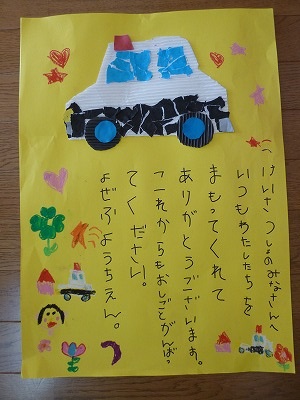 けいさつしょのみなさんへ
いつもわたしたちを
まもってくれて
ありがとうございます。
これからもおしごとがんばっ
てください。
よぜふようちえん。